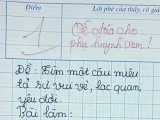 Điểm
Lời phê của thầy, cô giáo
1
Về đưa cho
phụ huynh xem!
Đề: Tìm một câu miêu
tả sự vui vẻ, lạc quan,
yêu đời.
Bài làm: